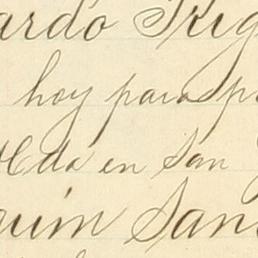 ardo Rig
hoy para p
da en San
uim San